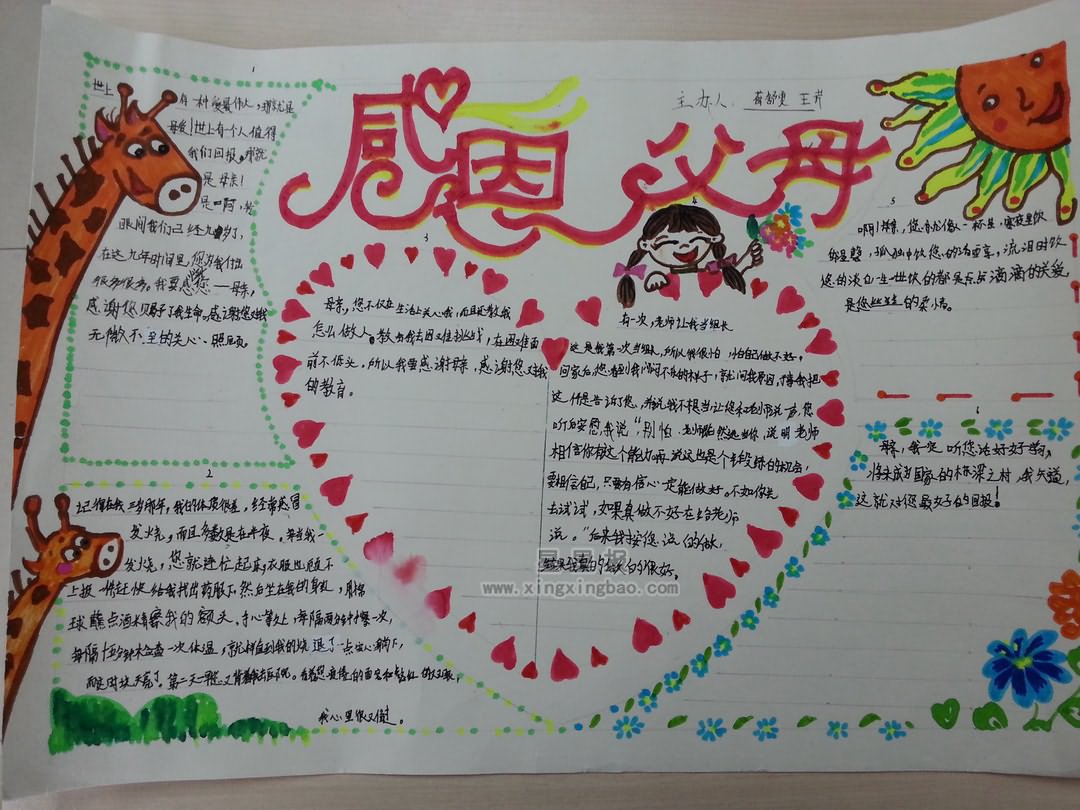 感恩 父母
主办人:
1
世上
有一种爱最伟大,那就是
母爱!世上有一个人值得
我们回报,那就
是母亲!
是啊,转
眼间我们已经九岁了,
在这九年时间里,您为我付出
很多很多。我要感恩您——母亲,
感谢您赐予了我生命。感谢您对我
无微不至的关心、照顾。
2
记得在我三岁那年,我的体质很差,经常感冒
发火尧,而且多数是在半夜。每当我一
发火尧,您就连忙起床,衣服也顾不
上披一件赶快给我找出药服下,然后坐在我的身边,用棉
球蘸点酒精擦我的额头、手心等处,每隔两分钟擦一次,
每隔十五分钟未查一次体温,就这样直到我的烧退了一点安心躺下,
我心里很又难过。
3
母亲,您不仅在生活上关心我,而且还教我
怎么做人。教会我去困难挑战,在困难面
前不低头。所以我要感谢母亲,感谢您对我
的教育。
4
有一次,老师让我当组长
这是我第一次当组长,所以我很怕,怕自己做不好。
回家后,您看到我闷闷不乐的样子,就问我原因,我把
这件是告诉了您,并说我不想当,让您和老师说一声,您
听后安慰我说“别怕,老师既然选当你,说明老师
相信你有这个能力,再说这也是个锻炼的机会,
要相信自己,只要有信心一定能做好。不如你先
去试试,如果真做不好在给老师
说。”后来我按您说的做,
结果我真的做的很好。
5
啊!母亲,您
您的淡白一生一世快的都是点点滴滴的关爱,
是您丝丝的柔情。
6
母亲,我一定听您话好好学习,
将来成为国家的栋梁之材,我知道
这就对您最好的回报!
星星报
www.xingxingbao.com